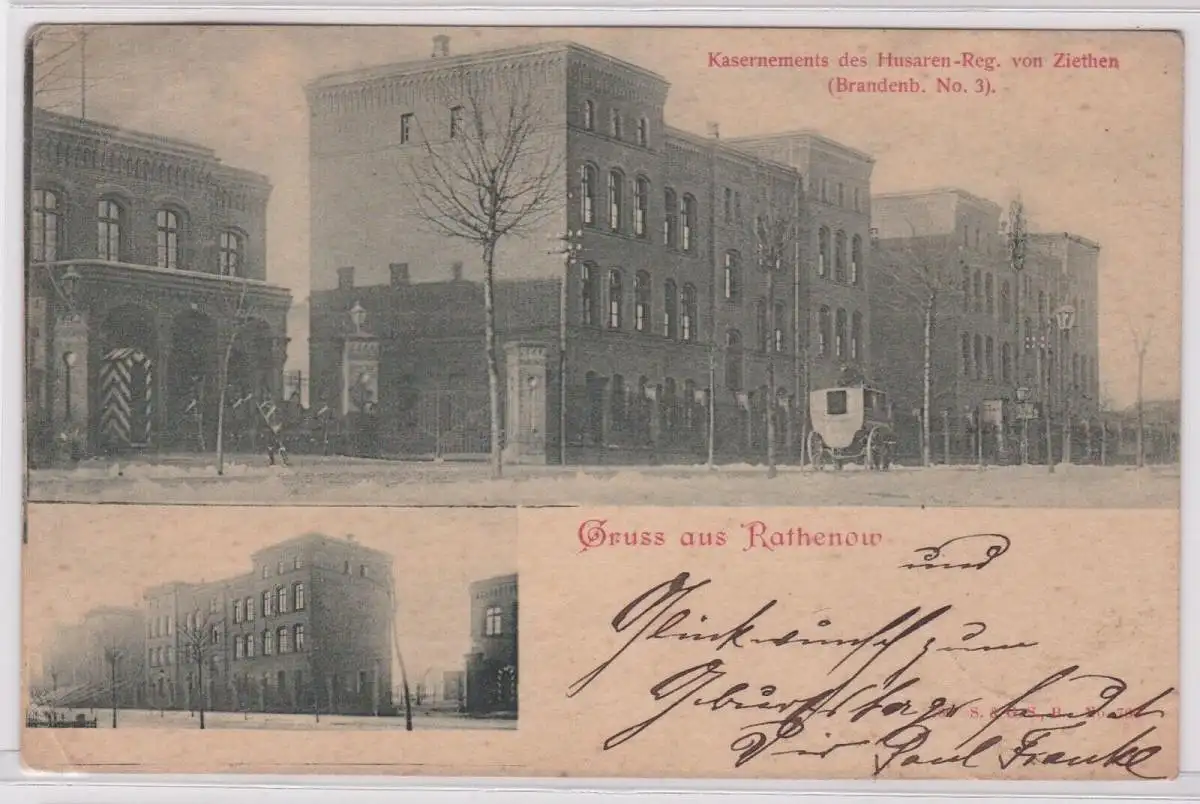 Kasernements des Husaren-Reg. von Ziethen
(Brandenb. No. 3).
Gruss aus Rathenow
und
Glückwunsch zum
Geburtstage sendet
S. & G. S., B. No.
Dir Paul Franke